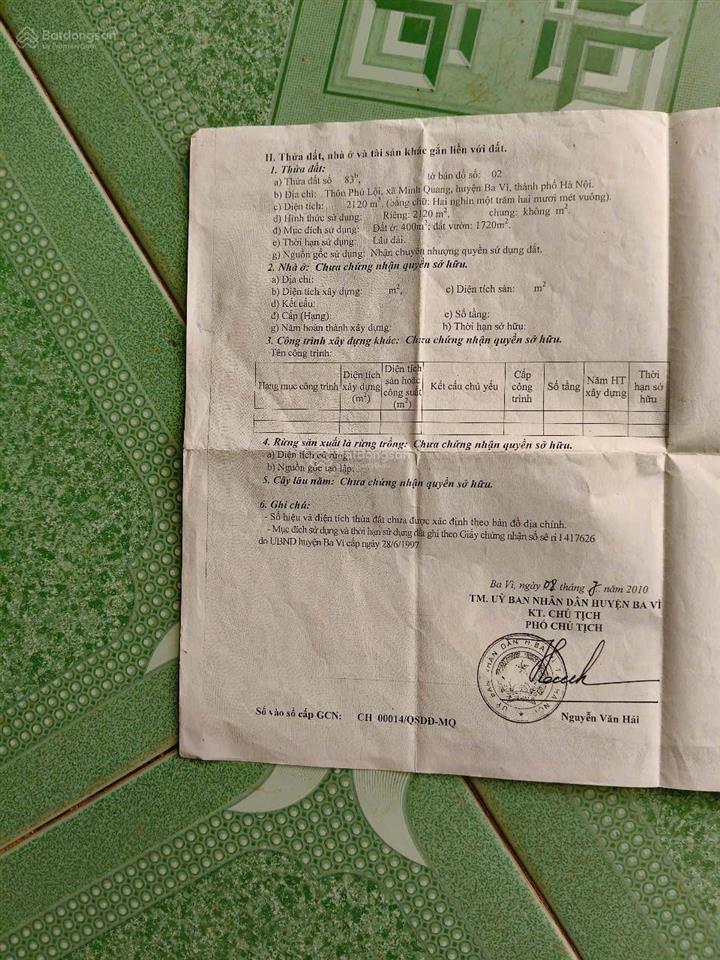 Batdongsan
by PropertyGuru
II. Thửa đất, nhà ở và tài sản khác gắn liền với đất.
1. Thửa đất:
a) Thửa đất số 83b, tờ bản đồ số: 02
b) Địa chỉ: Thôn Phú Lội, xã Minh Quang, huyện Ba Vì, thành phố Hà Nội.
c) Diện tích: 2120 m², (bằng chữ: Hai nghìn một trăm hai mươi mét vuông).
d) Hình thức sử dụng: Riêng: 2120 m², chung: không m².
đ) Mục đích sử dụng: Đất ở: 400m²; đất vườn: 1720m².
e) Thời hạn sử dụng: Lâu dài.
g) Nguồn gốc sử dụng: Nhận chuyển nhượng quyền sử dụng đất.
2. Nhà ở: Chưa chứng nhận quyền sở hữu.
a) Địa chỉ:
b) Diện tích xây dựng: m², c) Diện tích sàn: m²
d) Kết cấu:
đ) Cấp (Hạng): e) Số tầng:
g) Năm hoàn thành xây dựng: h) Thời hạn sở hữu:
3. Công trình xây dựng khác: Chưa chứng nhận quyền sở hữu.
Tên công trình:
Hạng mục công trình Diện tích xây dựng (m²) Diện tích sàn hoặc công suất (m²) Kết cấu chủ yếu Cấp công trình Số tầng Năm HT xây dựng Thời hạn sở hữu
4. Rừng sản xuất là rừng trồng: Chưa chứng nhận quyền sở hữu.
a) Diện tích có rừng:
b) Nguồn gốc tạo lập:
Batdongsan
5. Cây lâu năm: Chưa chứng nhận quyền sở hữu.
6. Ghi chú:
- Số hiệu và diện tích thửa đất chưa được xác định theo bản đồ địa chính.
- Mục đích sử dụng và thời hạn sử dụng đất ghi theo Giấy chứng nhận số sê ri I 417626
do UBND huyện Ba Vì cấp ngày 28/6/1997
Ba Vì, ngày 08 tháng 7 năm 2010
TM. UỶ BAN NHÂN DÂN HUYỆN BA VÌ
KT. CHỦ TỊCH
PHÓ CHỦ TỊCH
Nguyễn Văn Hải
Số vào sổ cấp GCN: CH 00014/QSDĐ-MQ